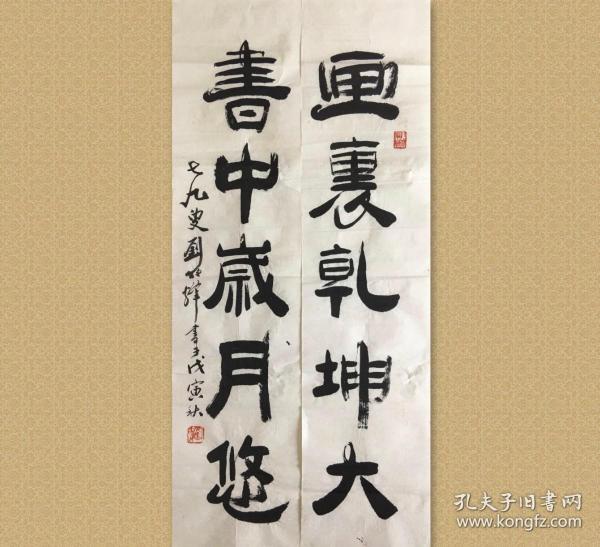 画裏乾坤大
書中歲月悠
七九叟劉 書于戊寅秋
孔夫子旧書网
www.kongfz.com